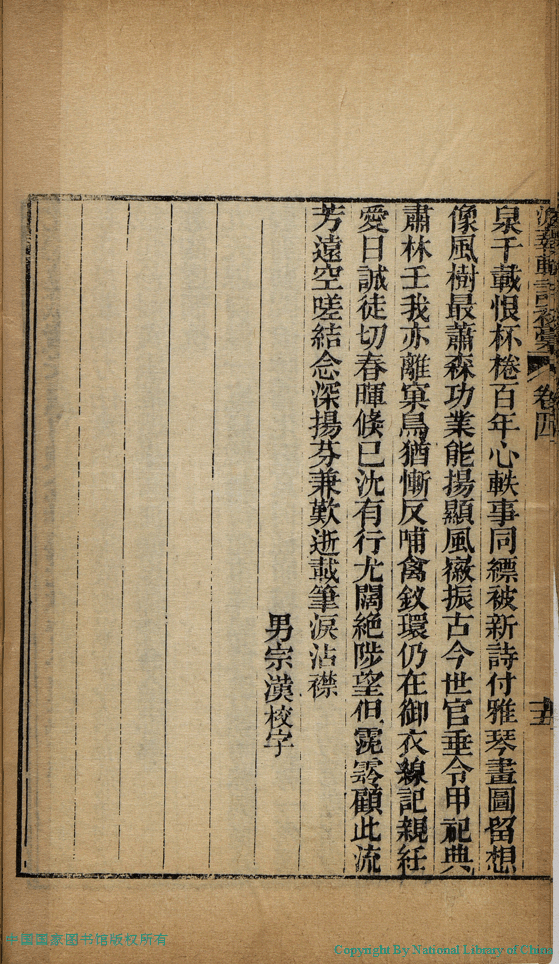 卷四
泉千載恨杯棬百年心軼事同縹被新詩付雅琴畫圖留想
像風樹最蕭森功業能揚顯風徽振古今世官垂令甲祀典
肅林壬我亦離窠鳥猶慚反哺禽釵環仍在御衣線記親紝
愛日誠徒切春暉倏已沈有行尤闊絕陟望但顧此流
芳遠空嗟結念深揚芬兼歎逝載筆淚沾襟
男宗漢校字
中国国家图书馆版权所有
Copyright By National Library of China